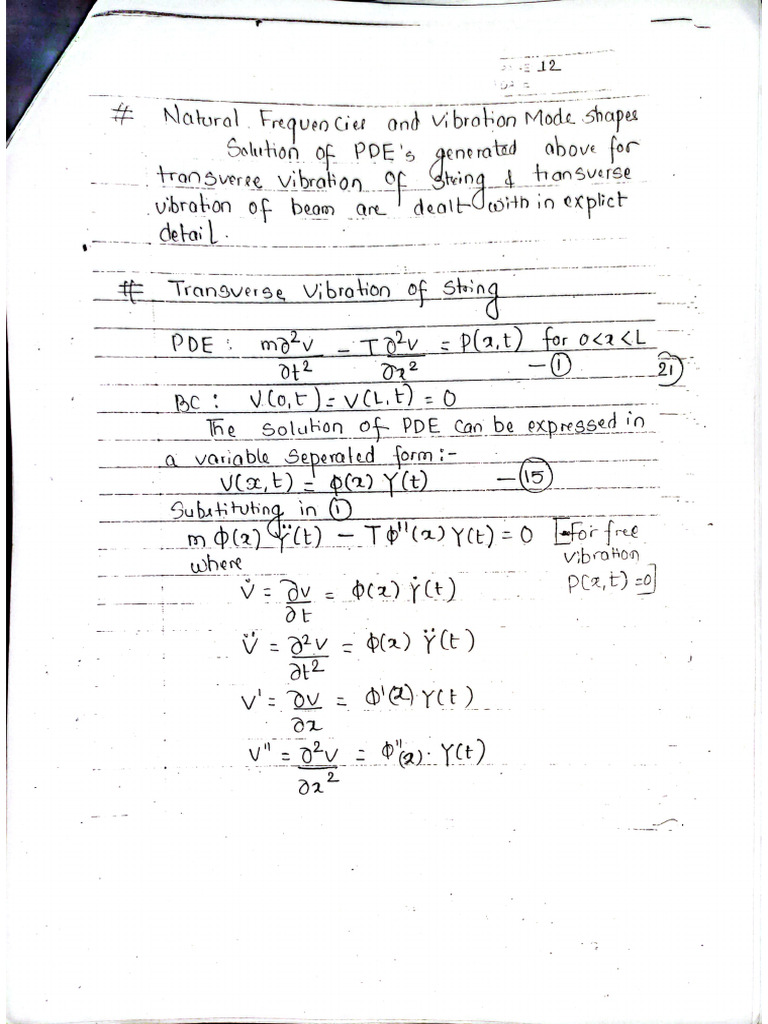 12
# Natural Frequencies and Vibration Mode shapes
Solution of PDE's generated above for
transverse vibration of string & transverse
vibration of beam are dealt with in explict
detail.
# Transverse Vibration of string
PDE : m∂²v/∂t² − T∂²v/∂x² = P(x,t) for 0<x<L —①
21
BC : V(0,t) = V(L,t) = 0
The solution of PDE can be expressed in
a variable seperated form:-
V(x,t) = ϕ(x) Y(t) —⑮
Substituting in ①
m ϕ(x) Ÿ(t) − T ϕ''(x) Y(t) = 0 [For free
vibration
P(x,t)=0]
where
V̇ = ∂v/∂t = ϕ(x) Ẏ(t)
V̈ = ∂²v/∂t² = ϕ(x) Ÿ(t)
V' = ∂v/∂x = ϕ'(x) Y(t)
V'' = ∂²v/∂x² = ϕ''(x) · Y(t)